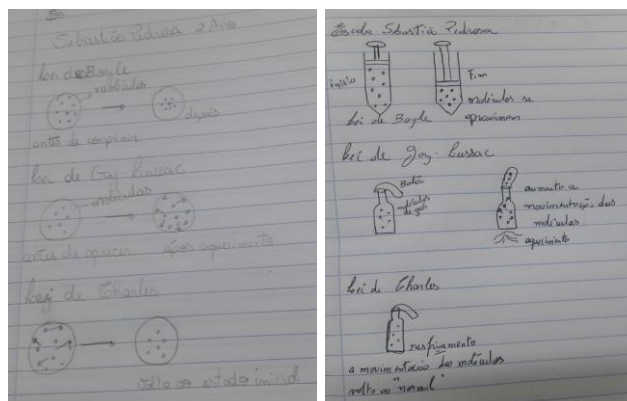 Sebastião Pedrosa 2 Ano
Lei de Boyle
moléculas
depois
antes de comprimir
Lei de Gay Lussac
moléculas
antes de aquecer após aquecimento
Lei de Charles
volta ao estado inicial
Escola Sbastião Pedrosa
início
Fim
moléculas se
aproximam
Lei de Boyle
Lei de Gay-Lussac
Balão
moléculas
de gás
aumenta a
movimentação das
moléculas.
aquecimento
Lei de Charles
resfriamento
a movimentação das moléculas
volta ao "normal"